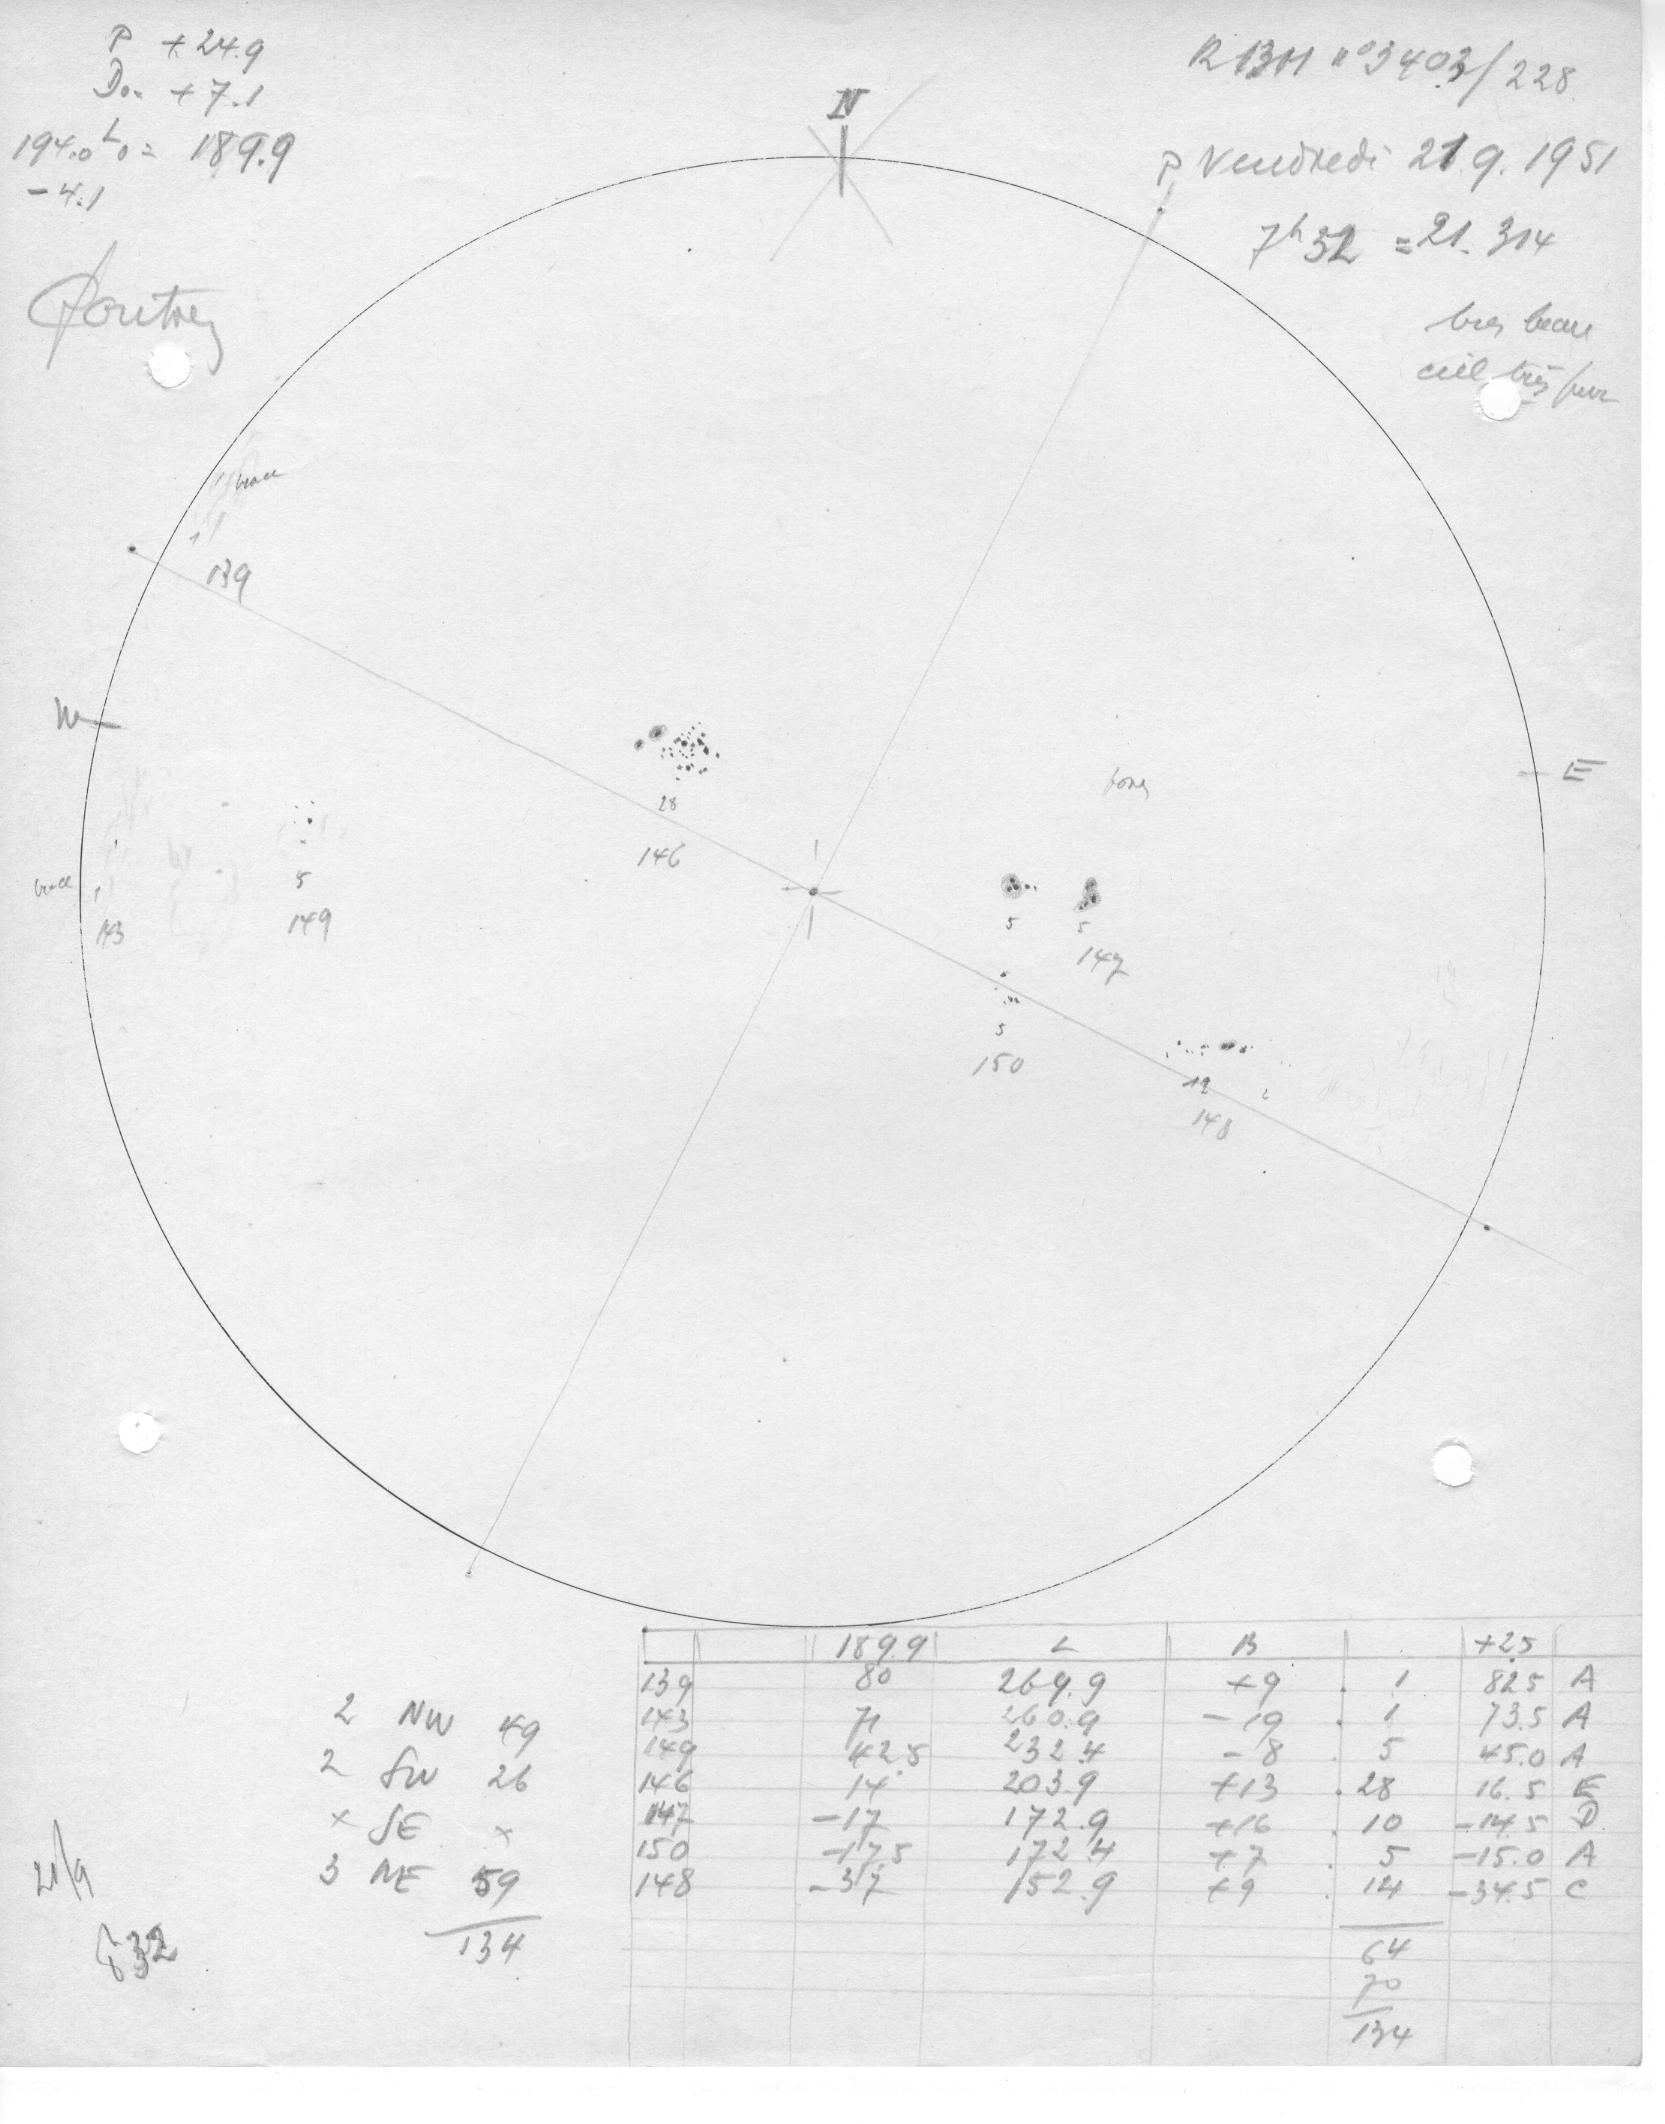 P +24.9
D₀= +7.1
194.0 L₀= 189.9
-4.1
N
n° 3403/228
P Vendredi 21 9. 1951
7h 32 = 21. 314
très beau
ciel très pur
1
139
W
1
143
5
149
28
146
E
5
5
147
5
150
12
2
148
1899 L B +25
139 80 269.9 +9 . 1 825 A
143 71 260.9 -19 . 1 73.5 A
149 42.5 232.4 -8 . 5 45.0 A
146 14 203.9 +13 . 28 16.5 E
147 -17 172.9 +16 . 10 -14.5 D
150 -17.5 172.4 +7 . 5 -15.0 A
148 -37 152.9 +9 . 14 -34.5 C
64
70
134
2 NW 49
2 SW 26
x SE x
3 NE 59
134
21/9
832